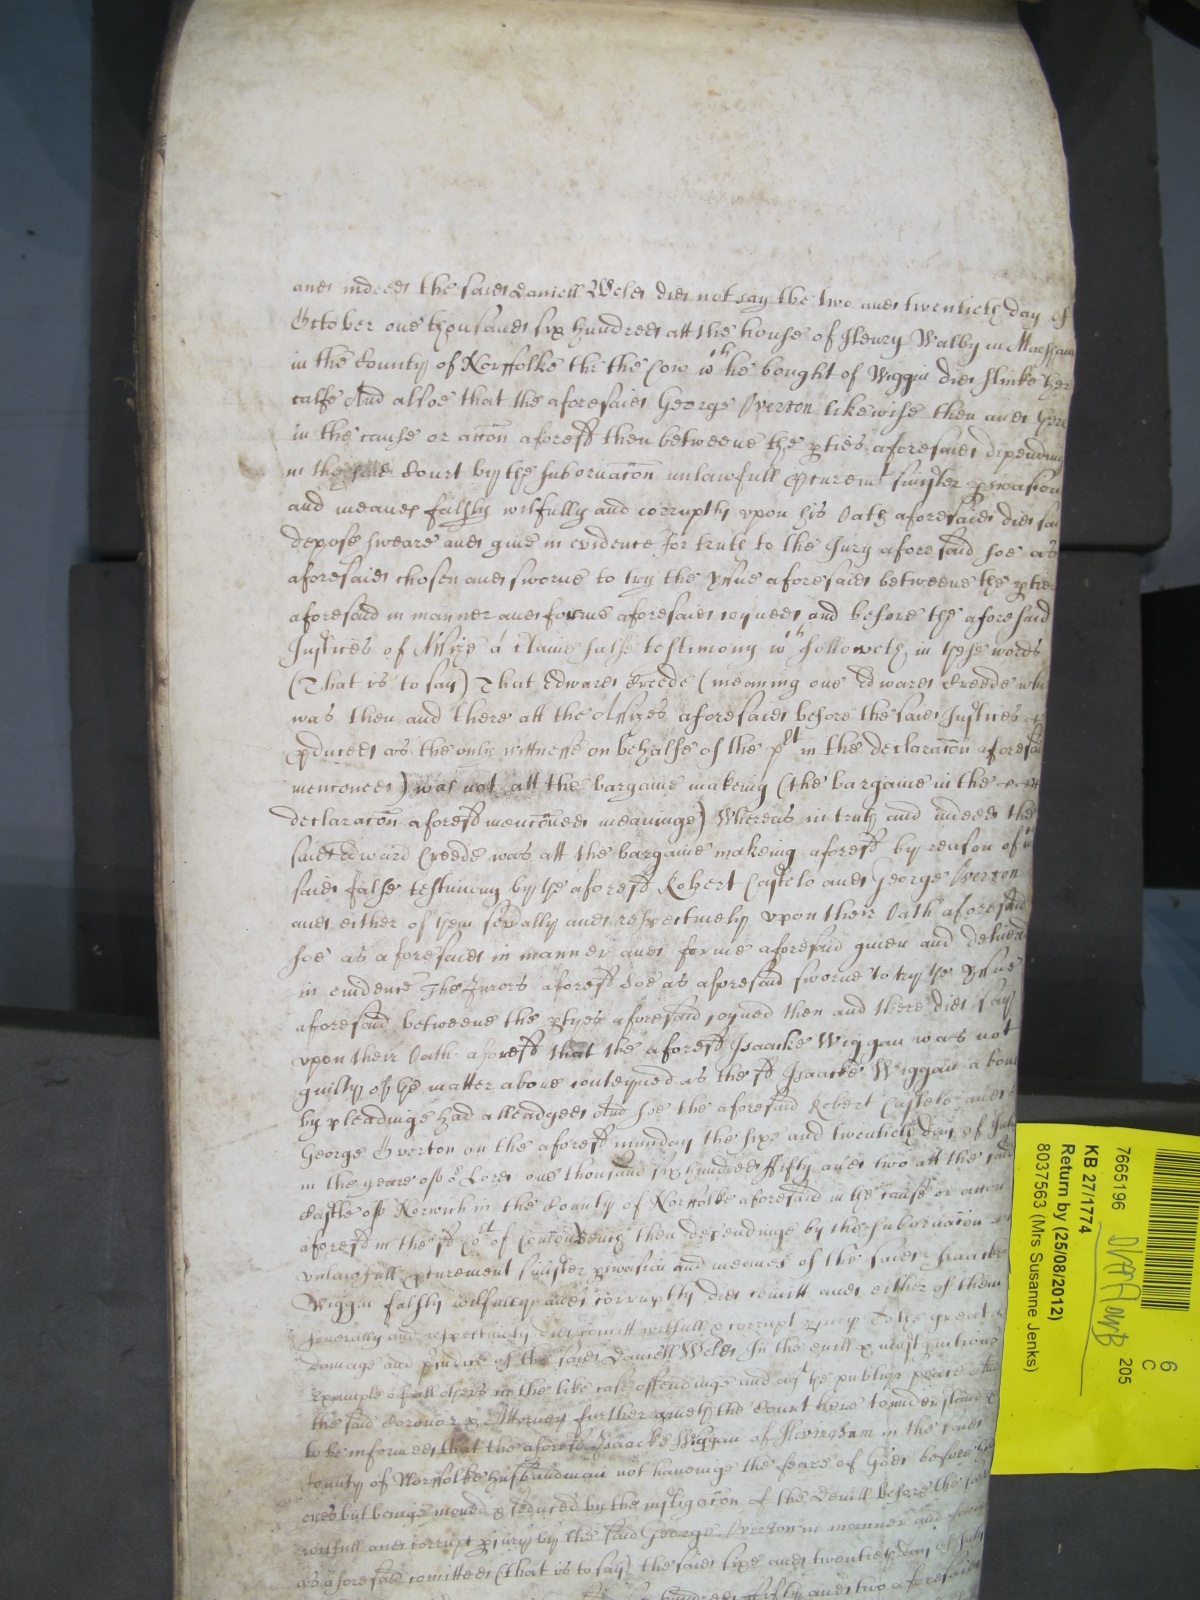 and indeed the said Daniell Weld did not say the two and twentieth day of
October one thousand six hundred att the house of Henry Walby in Marsham
in the County of Norffolke tht the Cow wch he bought of Wiggin did slinke her
calfe And alsoe that the aforesaid George Overton likewise then and there
in the cause or accon aforesd then betweene the pties aforesaid dependinge
in the said Court by the subornacon unlawfull pcuremt sinister pswasion
and meanes falsly wilfully and corruptly upon his Oath aforesaid did say
depose sweare and give in evidence for truth to the Jury aforesaid soe as
aforesaid chosen and sworne to try the Yssue aforesaid betweene the pties
aforesaid in manner and forme aforesaid ioyned and before the aforesaid
Justices of Assize a false testimony wch followeth in these words
(That is to say) That Edward Creede (meaning one Edward Creede who
was then and there att the Assizes aforesaid before the said Justices
pduced as the only wittnesse on behalfe of the plt in the declaracon aforesaid
menconed) was not att the bargaine makeing (the bargaine in the
declaracon aforesd menconed meaninge) Whereas in truth and indeed the
said Edward Creede was att the bargaine makeing aforesd by reason of wch
said false testimony by the aforesd Robert Castelo and George Overton
and either of them sevally and respectively upon their Oath aforesaid
soe as aforesaid in manner and forme aforesaid given and delivered
in evidence The Jurors aforesd soe as aforesaid sworne to try the Yssue
aforesaid betweene the ptyes aforesaid ioyned then and there did say
upon their Oath aforesd that the aforesd Isaacke Wiggan was not
guilty of the matter above conteyned as the sd Isaacke Wiggan above
by pleadinge had alleadged And soe the aforesaid Robert Castelo and
George Overton on the aforesd munday the sixe and twentieth day of July
in the yeare of or Lord one thousand six hundred ffifty and two att the said
Castle of Norwich in the County of Norffolke aforesaid in the cause or accon
aforesd in the sd then dependinge by the subornacon
unlawfull pcurement sinister pswasion and meanes of the said Isaacke
Wiggin falsly wilfully and corruptly did comitt and either of them
severally and respectively did comitt wilfull & corrupt piury To the great
Damage and of the said Daniell Weld In the evill & most pnitious
Example of all others in the like case offendinge and agt the publiq peace And
the said Coronor & Attorney further giveth the Court here to understand &
to be informed that the aforesd Isaacke Wiggan of Hevingham in the said
County of Norffolke husbandman not haveinge the feare of God before his
eyes but beinge moved & seduced by the instigacon of the Devill before the said
wilfull and corrupt piury by the said George Overton in manner and forme
as aforesaid comitted (that is to say) the said sixe and twentieth day of July
hundred ffifty and two aforesaid
7665196
205
6
C
KB 27/1774
Return by (25/08/2012)
8037563 (Mrs Susanne Jenks)